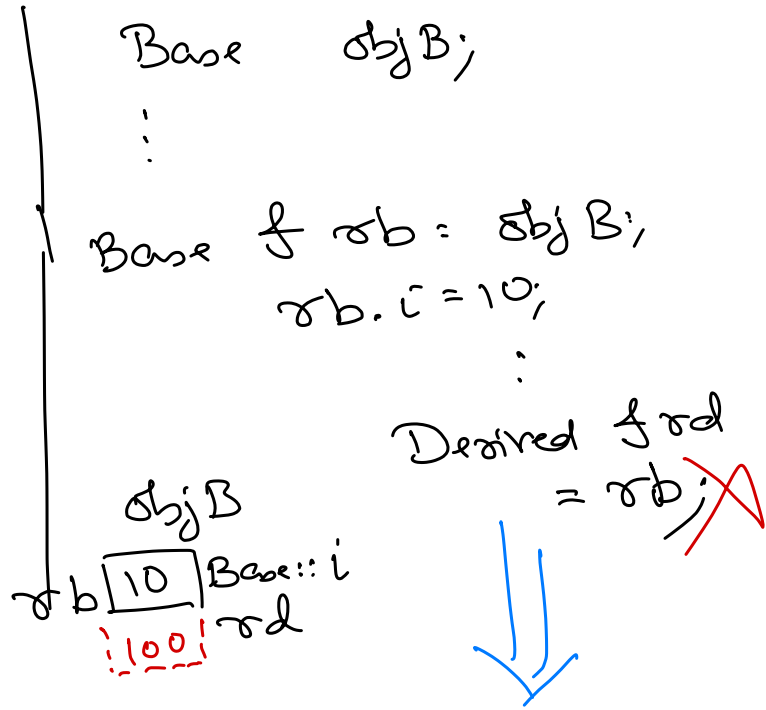 Base objB;
⋮
Base & rb = objB;
rb.i = 10;
⋮
Derived & rd
= rb;
objB
rb 10 Base::i
100 rd